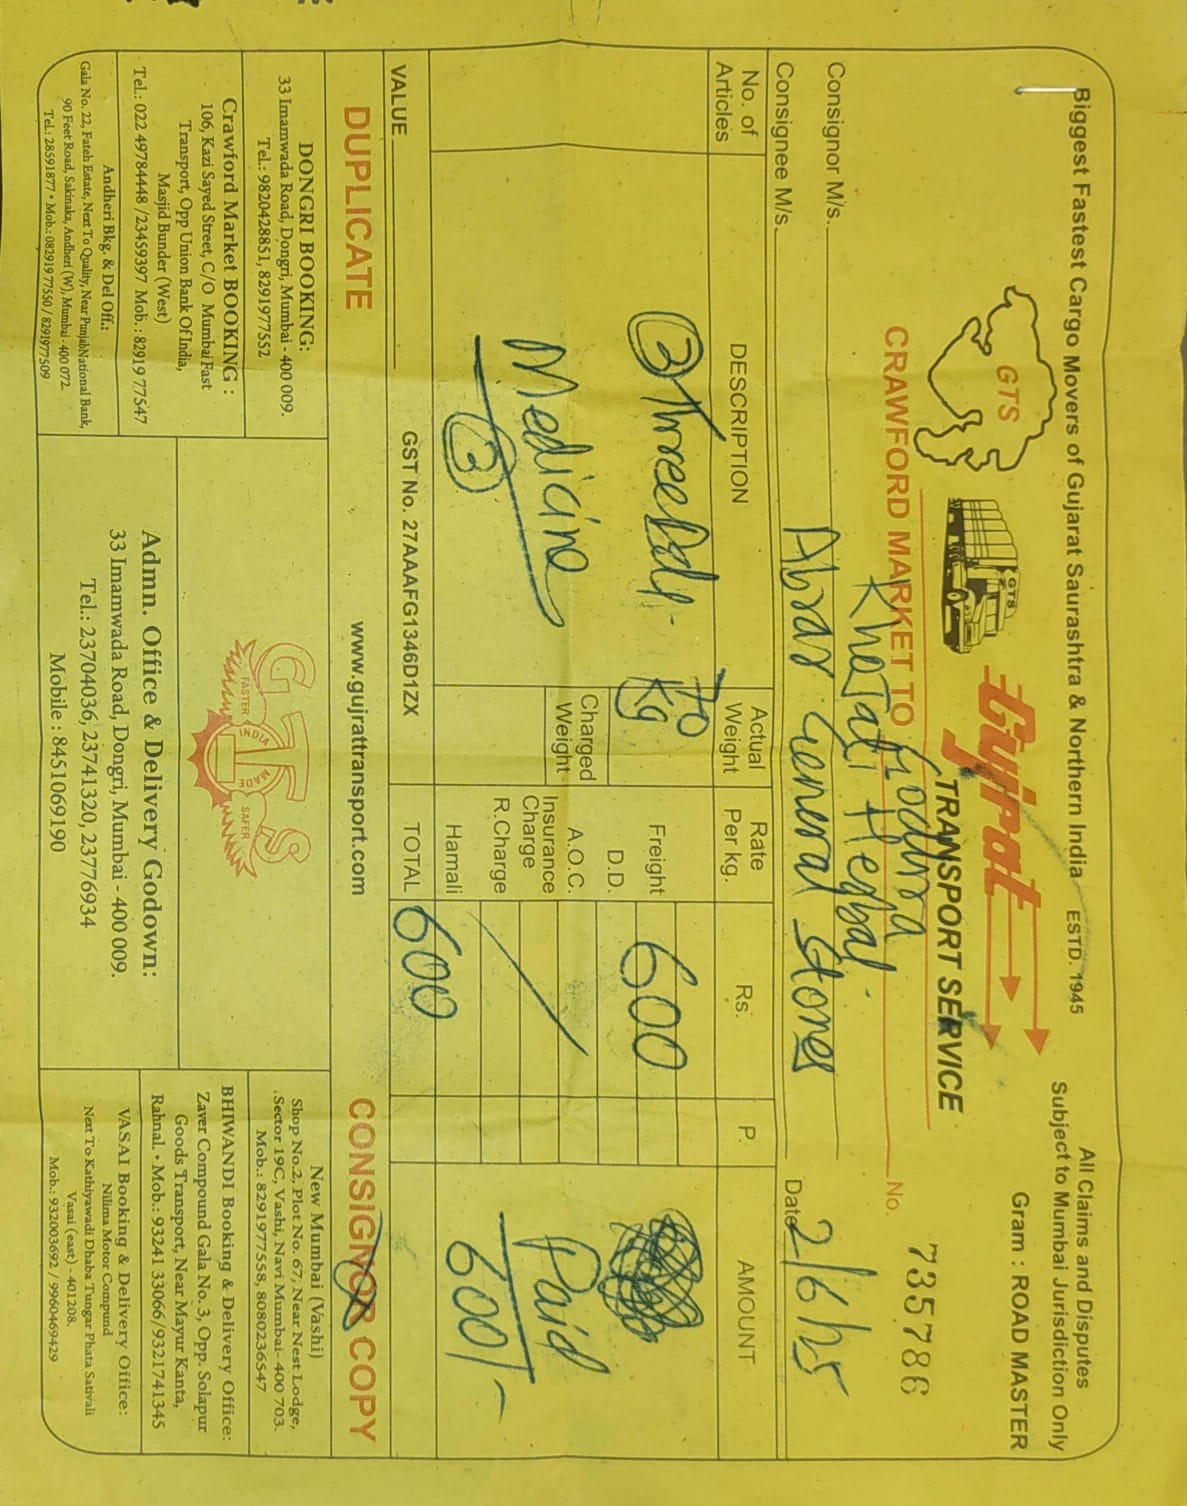 Biggest Fastest Cargo Movers of Gujarat Saurashtra & Northern India ESTD. 1945
All Claims and Disputes
Subject to Mumbai Jurisdiction Only
Gram : ROAD MASTER
GTS
GTS
Gujrat
TRANSPORT SERVICE
CRAWFORD MARKET TO Godhra No. 735786
Consignor M/s. Khatal Herbal
Consignee M/s. Abrar General Stores Date 2/6/25
No. of Articles
DESCRIPTION
Actual Weight
Rate Per kg.
Rs.
P.
AMOUNT
3 Three
Medicine
3
70 Kg
Charged Weight
Freight 600
D.D.
A.O.C.
Insurance Charge
R.Charge
Hamali
Paid
600/-
VALUE
GST No. 27AAAFG1346D1ZX
TOTAL 600
DUPLICATE
www.gujrattransport.com
CONSIGNOR COPY
DONGRI BOOKING:
33 Imamwada Road, Dongri, Mumbai - 400 009.
Tel.: 9820428851, 8291977552
Crawford Market BOOKING :
106, Kazi Sayed Street, C/O Mumbai Fast
Transport, Opp Union Bank Of India,
Masjid Bunder (West)
Tel.: 022 49784448 /23459397 Mob. : 82919 77547
Andheri Bkg. & Del Off.:
Gala No. 22, Fateh Estate, Next To Quality, Near Punjab National Bank,
90 Feet Road, Sakinaka, Andheri (W), Mumbai - 400 072.
Tel.: 28591877 • Mob.: 082919 77550 / 8291977509
GTS
FASTER
INDIA
MADE
SAFER
Admn. Office & Delivery Godown:
33 Imamwada Road, Dongri, Mumbai - 400 009.
Tel.: 23704036, 23741320, 23776934
Mobile : 8451069190
New Mumbai (Vashi)
Shop No.2, Plot No. 67, Near Nest Lodge,
Sector 19C, Vashi, Navi Mumbai- 400 703.
Mob.: 8291977558, 8080236547
BHIWANDI Booking & Delivery Office:
Zaver Compound Gala No. 3, Opp. Solapur
Goods Transport, Near Mayur Kanta,
Rahnal. • Mob.: 93241 33066/9321741345
VASAI Booking & Delivery Office:
Nilima Motor Compund
Next To Kathiyawadi Dhaba Tungar Phata Sativali
Vasai (east) - 401208.
Mob.: 9320036922 / 9960469429